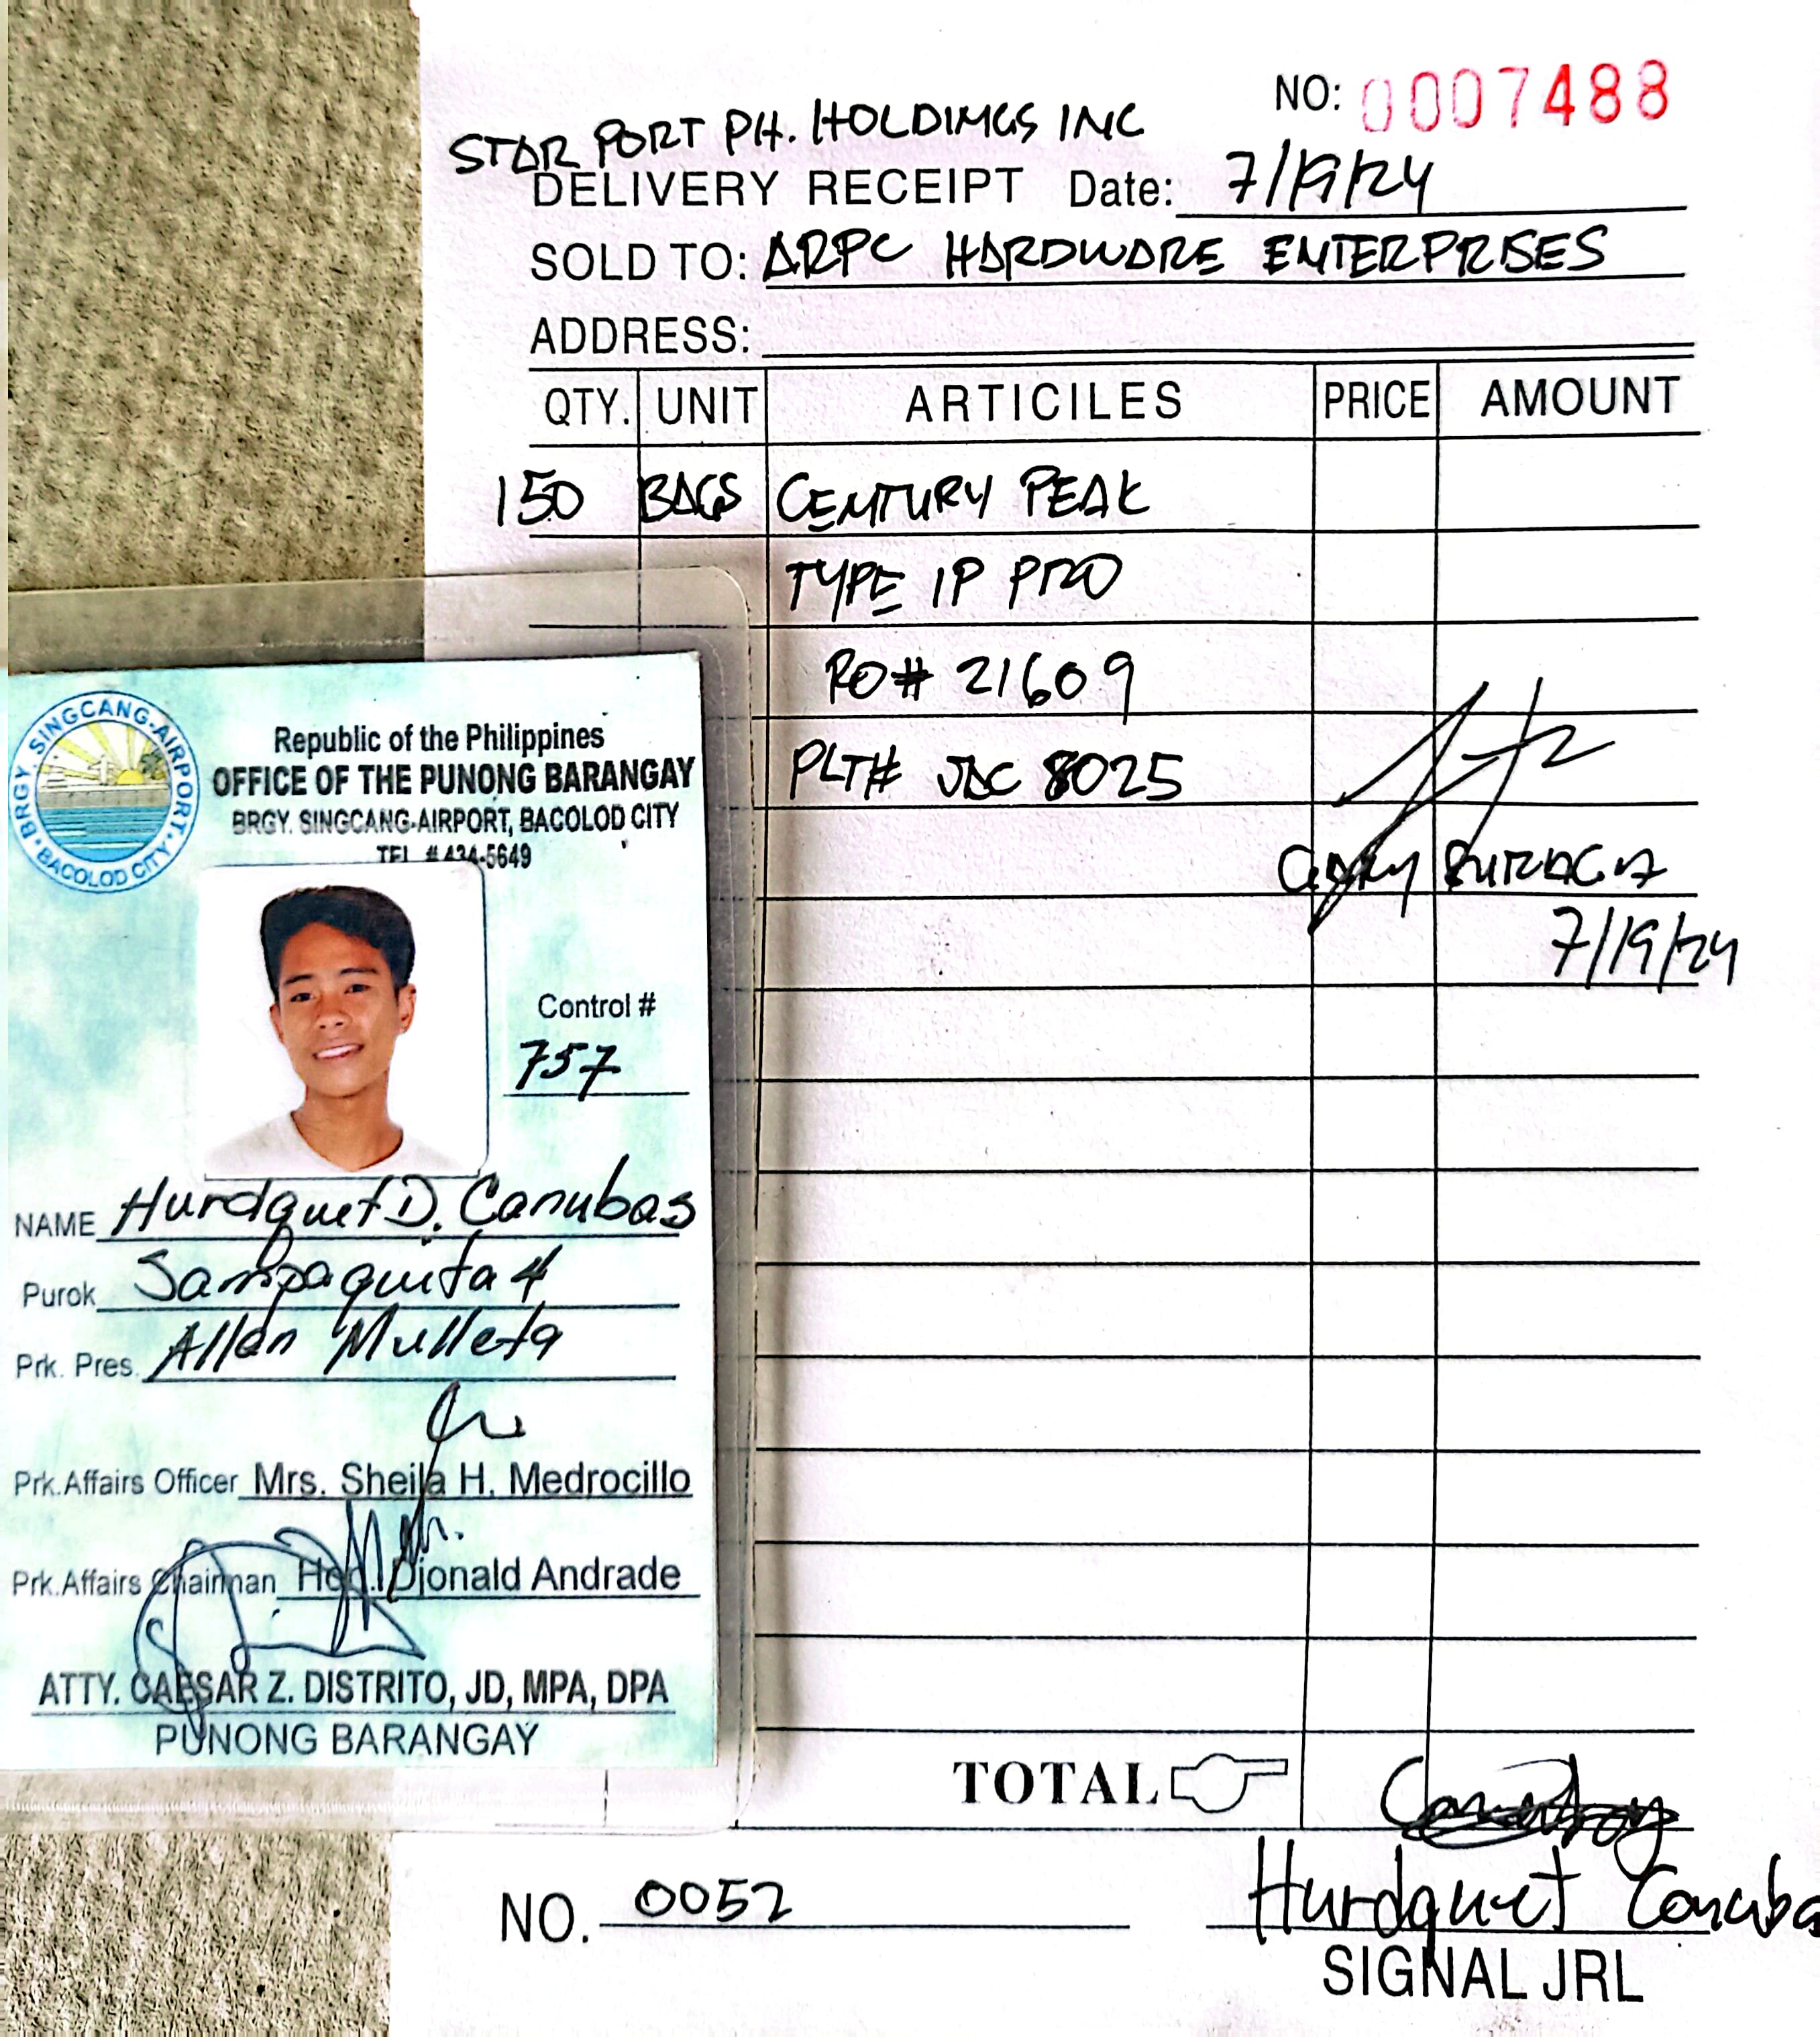 NO: 0007488
STAR PORT PH. HOLDINGS INC
DELIVERY RECEIPT Date: 7/19/24
SOLD TO: ARPC HARDWARE ENTERPRISES
ADDRESS:
QTY. UNIT ARTICILES PRICE AMOUNT
150 BAGS CENTURY PEAK
TYPE 1P PRO
RO# 21609
PLT# JAC 8025
7/19/24
TOTAL
NO. 0052
Hurdquet Canuba
SIGNAL JRL
BRGY. SINGCANG-AIRPORT
BACOLOD CITY
Republic of the Philippines
OFFICE OF THE PUNONG BARANGAY
BRGY. SINGCANG-AIRPORT, BACOLOD CITY
TEL # 434-5649
Control #
757
NAME Hurdquet D. Canubas
Purok Sampaquita 4
Prk. Pres. Allan Mulleta
Prk.Affairs Officer Mrs. Sheila H. Medrocillo
Prk.Affairs Chairman Hon. Dionald Andrade
ATTY. CAESAR Z. DISTRITO, JD, MPA, DPA
PUNONG BARANGAY